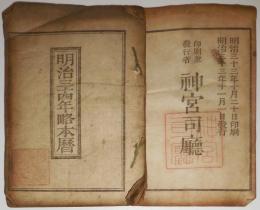 明治三十三年十月二十日印刷
明治三十三年十一月一日發行
印刷兼
發行者
神宮司廳
明治三十四年略本暦